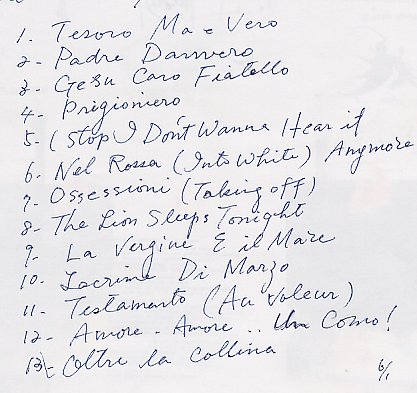 1- Tesoro Ma e Vero
2- Padre Davvero
3- Gesu Caro Fratello
4- Prigioniero
5- (Stop I Don't Wanna Hear it
Anymore
6- Nel Rossa (Into White)
7- Ossessioni (Taking off)
8- The Lion Sleeps Tonight
9- La Vergine E il Mare
10- Lacrime Di Marzo
11- Testamento (Au Voleur)
12- Amore - Amore .. Un Como!
13- Oltre la Collina
6/1